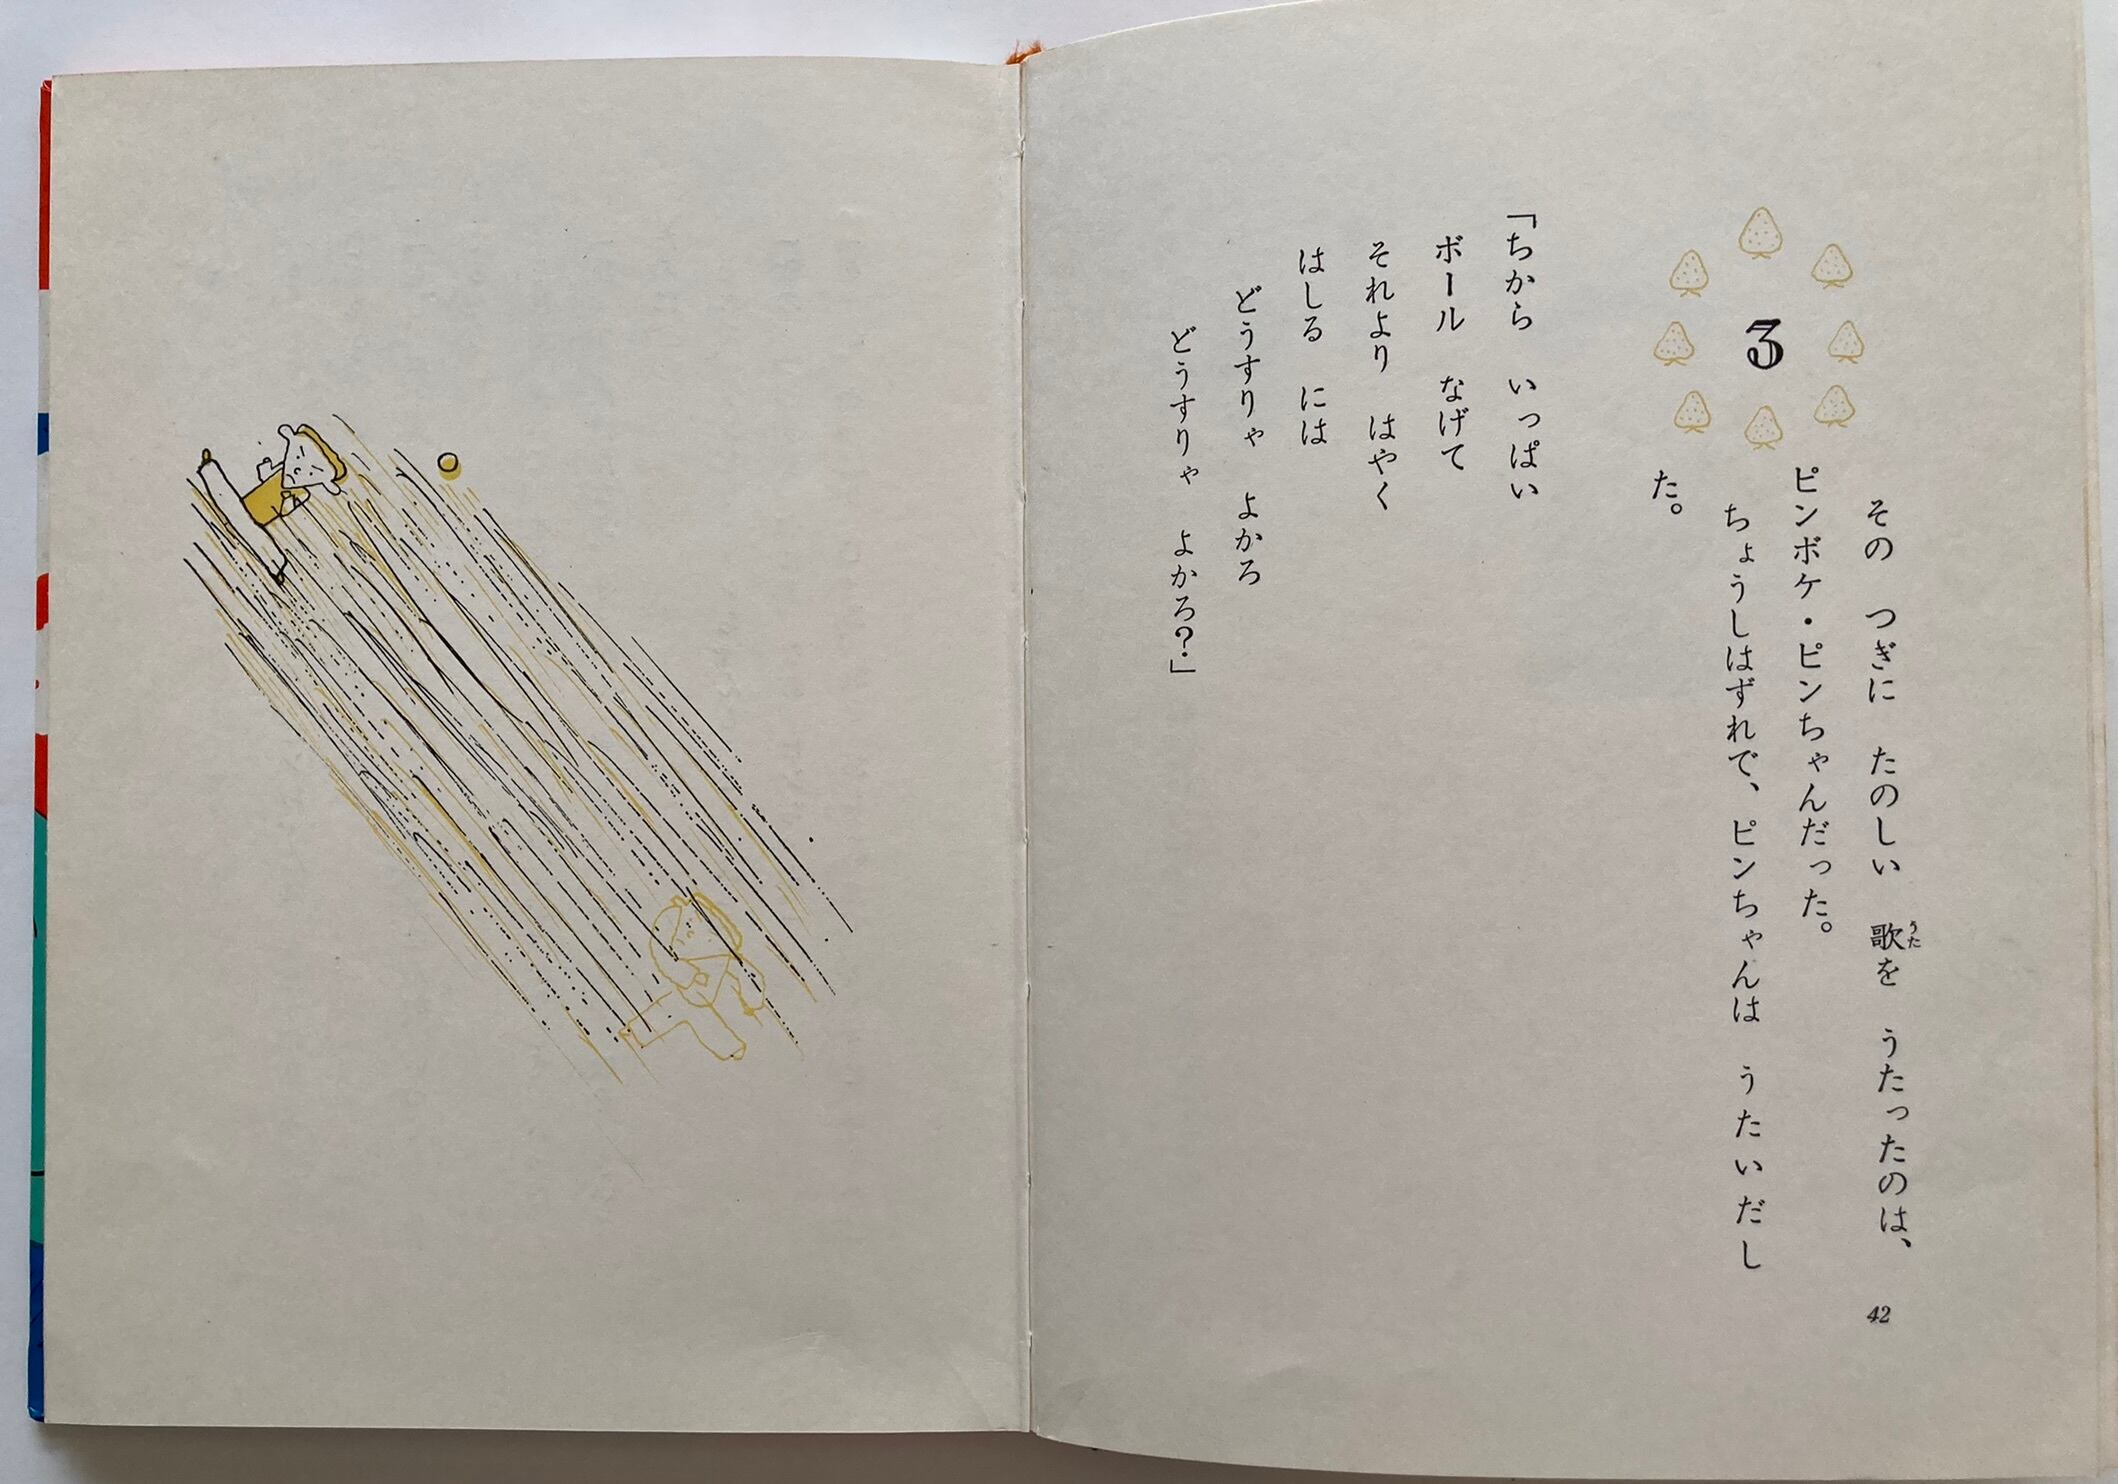 3
その　つぎに　たのしい　歌を　うたったのは、
うた
ピンボケ・ピンちゃんだった。
ちょうしはずれで、ピンちゃんは　うたいだし
た。
「ちから　いっぱい
ボール　なげて
それより　はやく
はしる　には
どうすりゃ　よかろ
どうすりゃ　よかろ？」
42